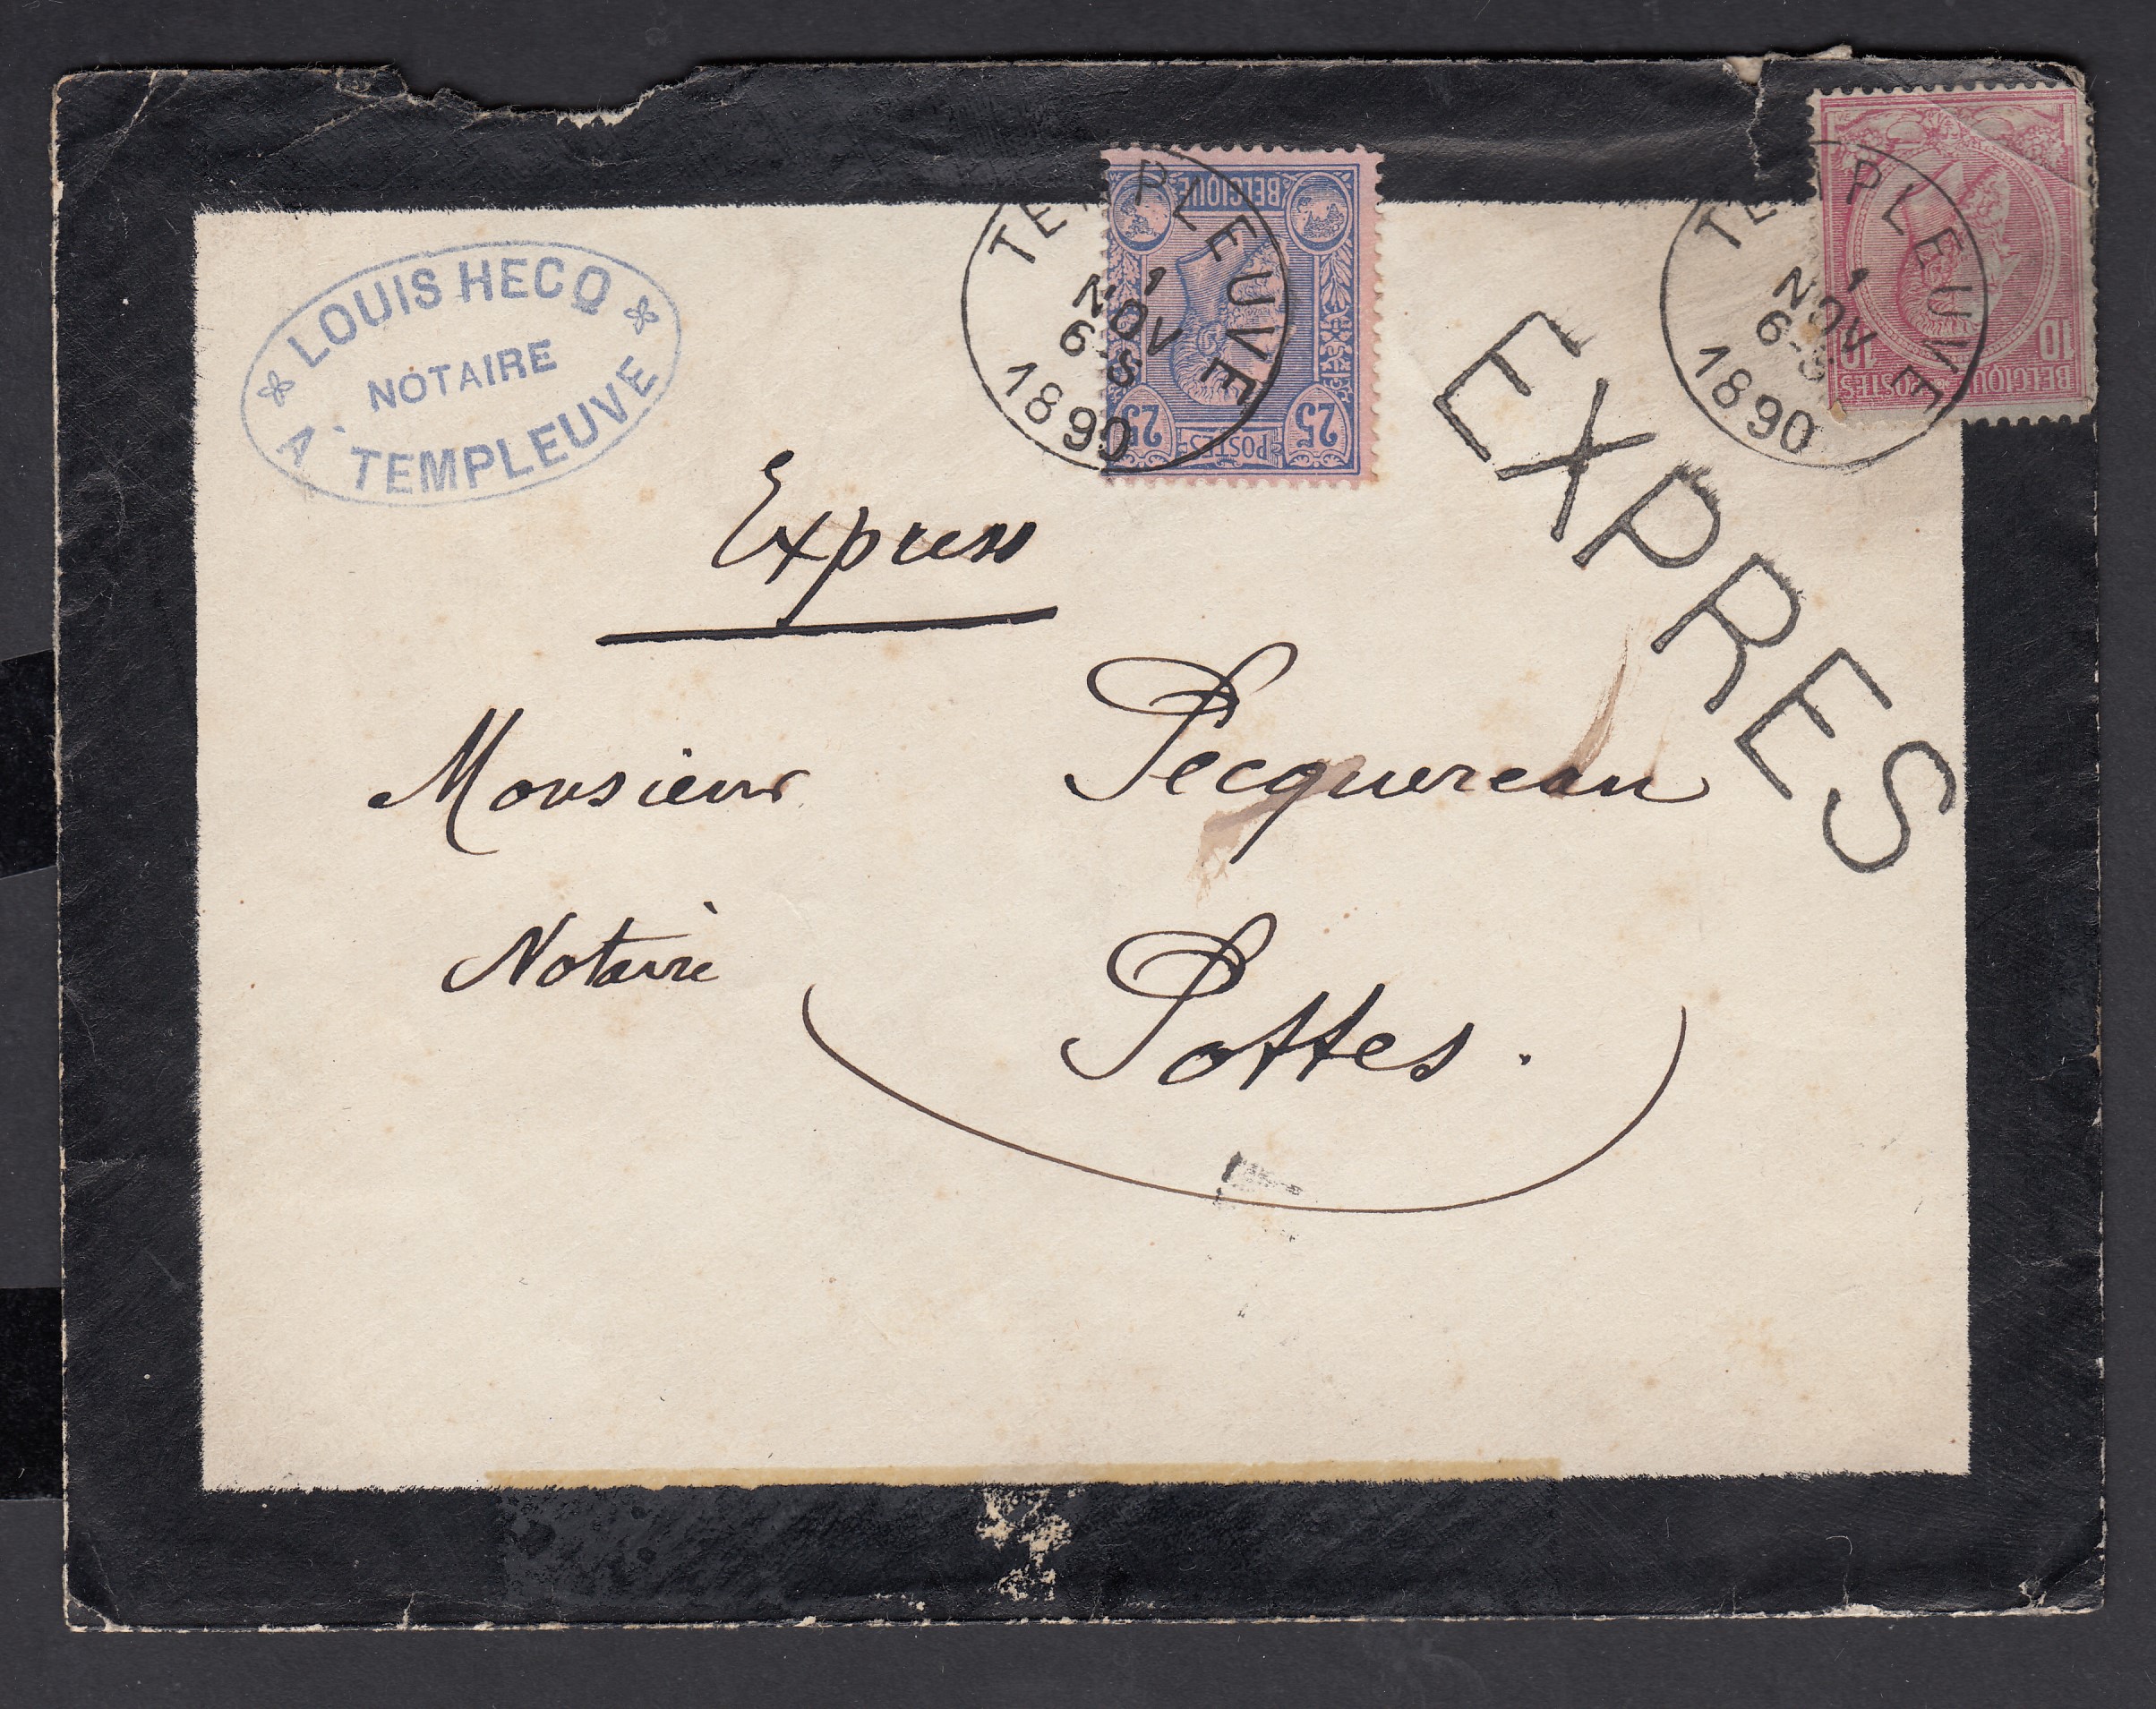 LOUIS HECQ
NOTAIRE
A TEMPLEUVE
TEMPLEUVE
1
NOV
6-S
1890
BELGIQUE
POSTES
25 25
TEMPLEUVE
1
NOV
6-S
1890
10 10
POSTES
BELGIQUE
EXPRES
Express
Monsieur Pecquereau
Notaire
Pottes.